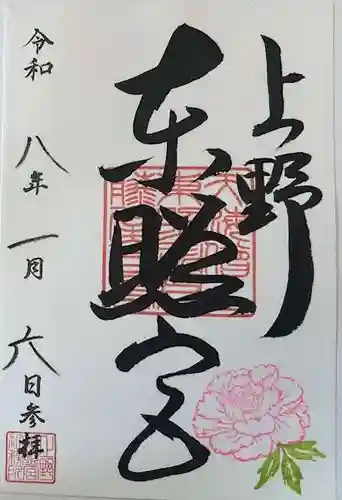 上野
東照宮
令和八年一月六日参拝